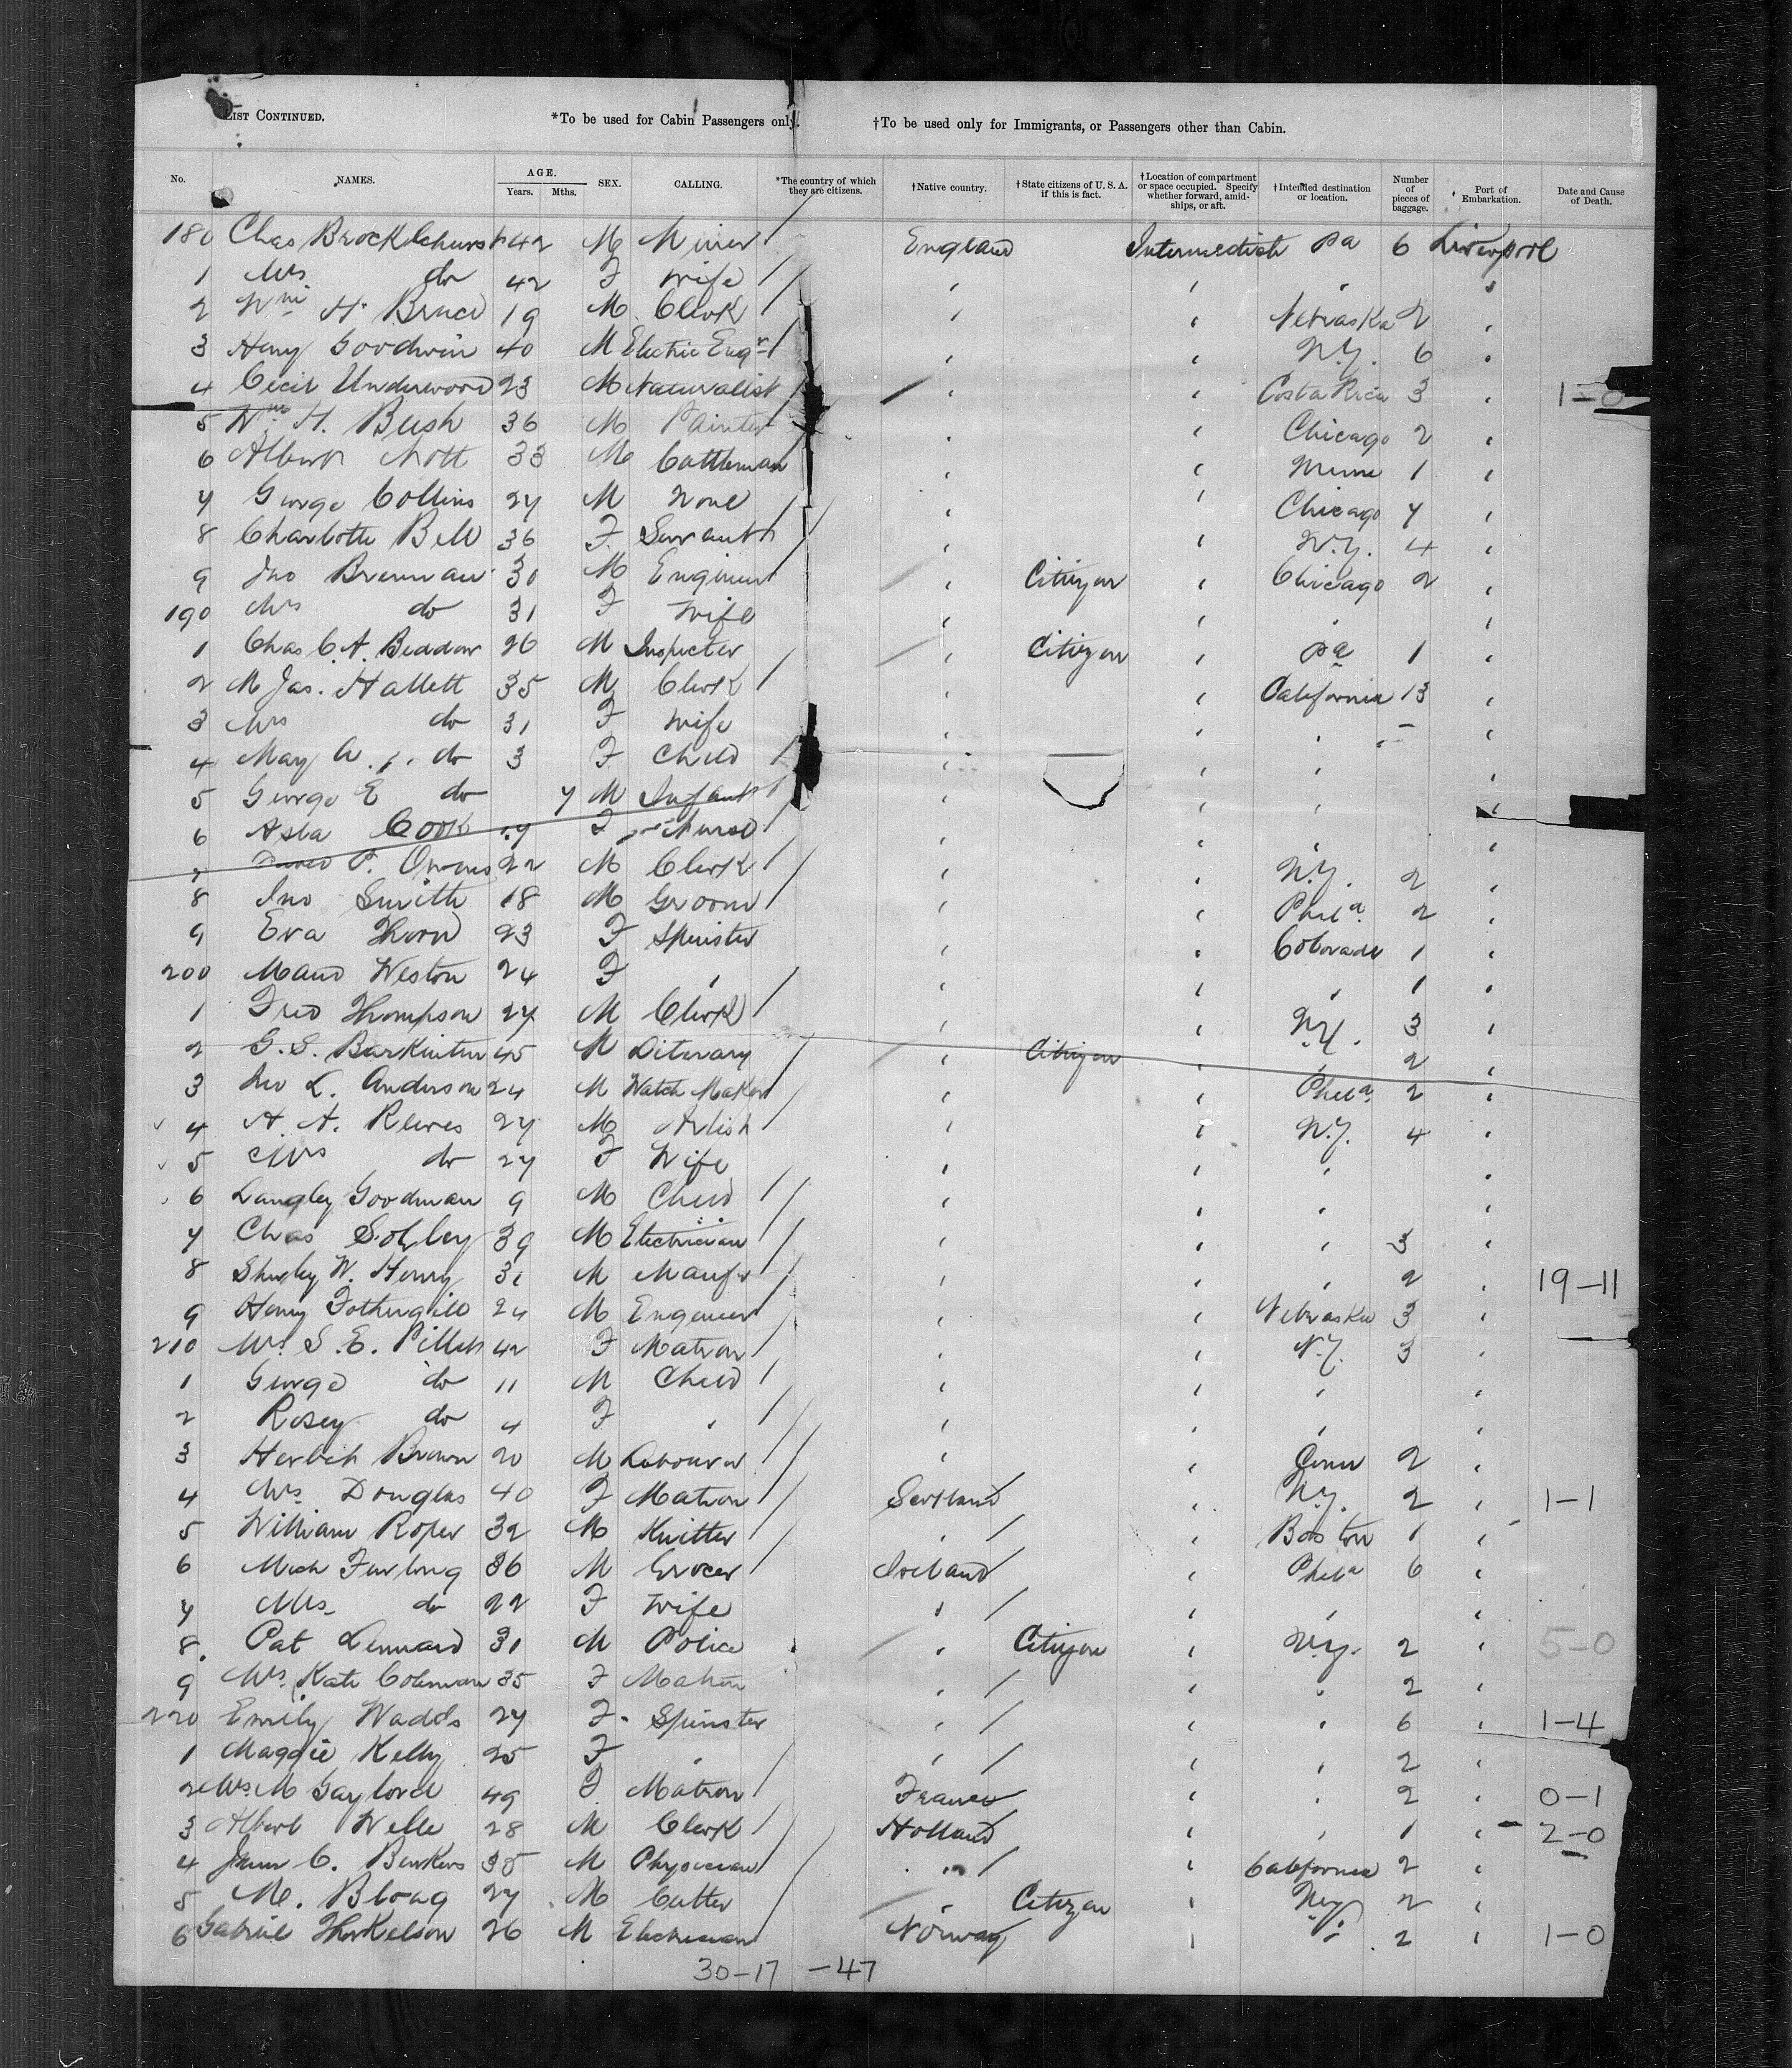 LIST CONTINUED. *To be used for Cabin Passengers only. †To be used only for Immigrants, or Passengers other than Cabin.
No. NAMES. AGE. Years. Mths. SEX. CALLING. *The country of which they are citizens. †Native country. †State citizens of U. S. A. if this is fact. †Location of compartment or space occupied. Specify whether forward, amidships, or aft. †Intended destination or location. Number of pieces of baggage. Port of Embarkation. Date and Cause of Death.
180 Chas Brocklehurst 42 M Miner England Intermediate Pa 6 Liverpool
1 Mrs do 42 F Wife
2 Wm H. Bruce 19 M Clerk Nebraska 2
3 Henry Goodwin 40 M Electric Engr N.Y. 6
4 Cecil Underwood 23 M Naturalist Costa Rica 3 1-0
5 Wm H. Bush 36 M Painter Chicago 2
6 Albert Nott 33 M Cattleman Minn 1
7 George Collins 27 M None Chicago 7
8 Charlotte Bell 36 F Servant N.Y. 4
9 Jno Brennan 30 M Engineer Citizen Chicago 2
190 Mrs do 31 F Wife
1 Chas C. A. Beddow 26 M Inspecter Citizen Pa 1
2 M Jas. Hallett 35 M Clerk California 13
3 Mrs do 31 F Wife
4 May A. do 3 F Child
5 George E do 7 M Infant
6 Cook F Nurse
7 P. Owens 22 M Clerk N.Y. 2
8 Jno Smith 18 M Groom Phila 2
9 Eva Thorn 23 F Spinster Colorado 1
200 Maud Weston 24 F 1
1 Fred Thompson 27 M Clerk N.Y. 3
2 G. S. 45 M Literary Citizen 2
3 L. Anderson 24 M Watch Maker Phila 2
4 A. A. Reeves 27 M Artist N.Y. 4
5 Mrs do 27 F Wife
6 Langley Goodman 9 M Child
7 Chas Sotley 39 M Electrician 3
8 Shirley W. Henry 31 M Manufr 2 19-11
9 Henry Fothergill 24 M Engineer Nebraska 3
210 Mrs S. E. 42 F Matron N.Y. 3
1 George do 11 M Child
2 Rosey do 4 F
3 Herbert Brown 20 M Labourer Conn 2
4 Mrs Douglas 40 F Matron Scotland N.Y. 2 1-1
5 William Roper 32 M Knitter Boston 1
6 Mich Furlong 36 M Grocer Ireland Phila 6
7 Mrs do 22 F Wife
8 Pat Lennard 31 M Police Citizen N.Y. 2 5-0
9 Mrs Kate Coleman 35 F Matron 2
220 Emily Wadds 27 F Spinster 6 1-4
1 Maggie Kelly 25 F 2
2 Mrs M Gaylord 49 F Matron France 2 0-1
3 Albert Welle 28 M Clerk Holland 1 2-0
4 C. 35 M Physician California 2
5 M. Bloag 27 M Cutter Citizen N.Y. 2
6 Gabriel Thorkelson 26 M Electrician Norway 2 1-0
30-17 -47